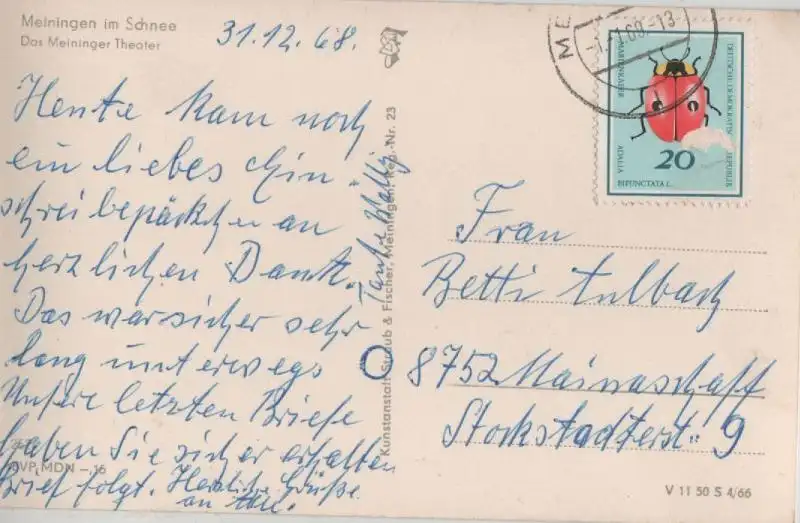 Meiningen im Schnee
Das Meininger Theater
31.12.68.
Heute kam noch
ein liebes Ein-
schreibepäckchen an
herzlichen Dank.
Das war sicher sehr
lang unterwegs
Unsere letzten Briefe
haben Sie sicher erhalten
Brief folgt. Herzliche Grüße
an alle.
Tante
EVP MDN -,15
Kunstanstalt Straub & Fischer, Meiningen, Reg.-Nr. 23
MARIENKÄFER
ADALIA
BIPUNCTATA L.
DEUTSCHE DEMOKRATISCHE REPUBLIK
20
ME
-1.1.69.-13
Frau
Betti Aulbach
8752 Mainaschaff
Stockstadterstr. 9
V 11 50 S 4/66